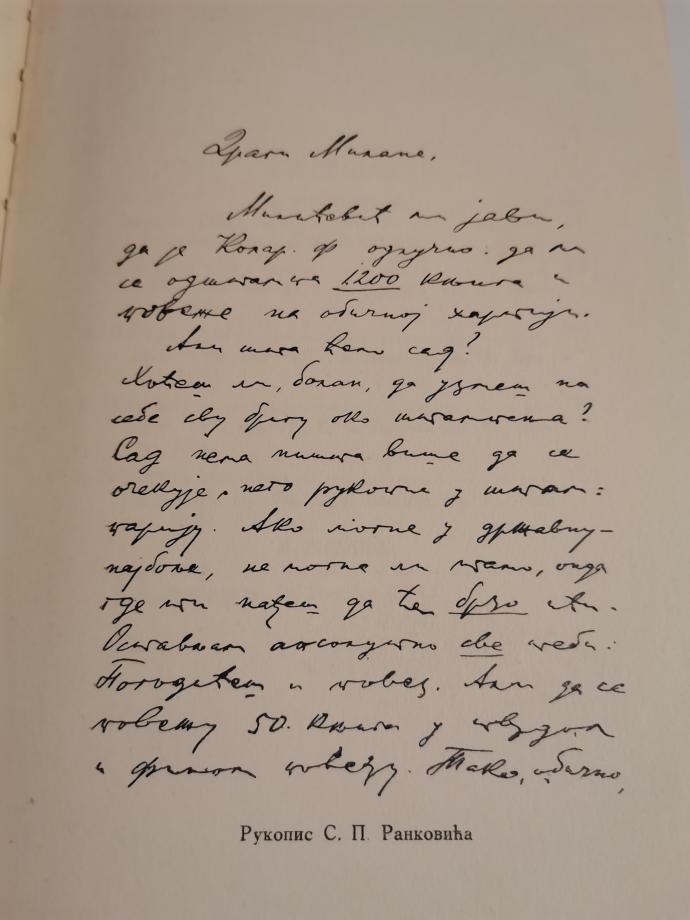 Драги Милане,
Милићевић ми јавља,
да је Колар. ф одлучио. да ми
се одштампа 1200 књига и
повеже на обичној хартији.
Али шта ћемо сад?
Хоћеш ли, болан, да узмеш на
себе сву бригу око штампања?
Сад нема ништа више да се
очекује, него рукопис у штам:
парију. Ако може у државну—
најбоље, не може ли тамо, онда
где ти нађеш да ће брзо ићи.
Остављам апсолутно све теби.
Погодићеш и повез. Али да се
повежу 50. књига у тврдом
и фином повезу. Тако, обично,
Рукопис С. П. Ранковића